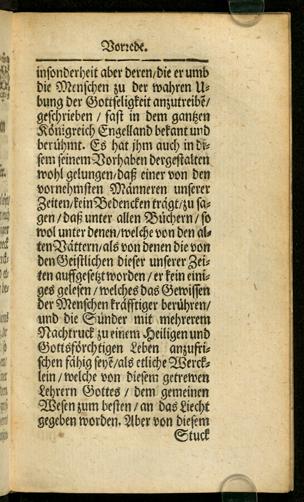 Vorrede.
insonderheit aber deren/die er umb
die Menschen zu der wahren U-
bung der Gottseligkeit anzutreibẽ/
geschrieben / fast in dem gantzen
Königreich Engelland bekant und
berühmt. Es hat jhm auch in die-
sem seinem Vorhaben dergestalten
wohl gelungen/daß einer von den
vornehmsten Männeren unserer
Zeiten/kein Bedencken trägt/zu sa-
gen / daß unter allen Büchern / so
wol unter denen/welche von den al-
ten Vättern/als von denen die von
den Geistlichen dieser unserer Zei-
ten auffgesetzt worden / er kein eini-
ges gelesen / welches das Gewissen
der Menschen kräfftiger berühren/
und die Sünder mit mehrerem
Nachtruck zu einem Heiligen und
Gottsförchtigen Leben anzufri-
schen fähig seyẽ/als etliche Werck-
lein / welche von diesem getrewen
Lehrern Gottes / dem gemeinen
Wesen zum besten / an das Liecht
gegeben worden. Aber von diesem
Stuck